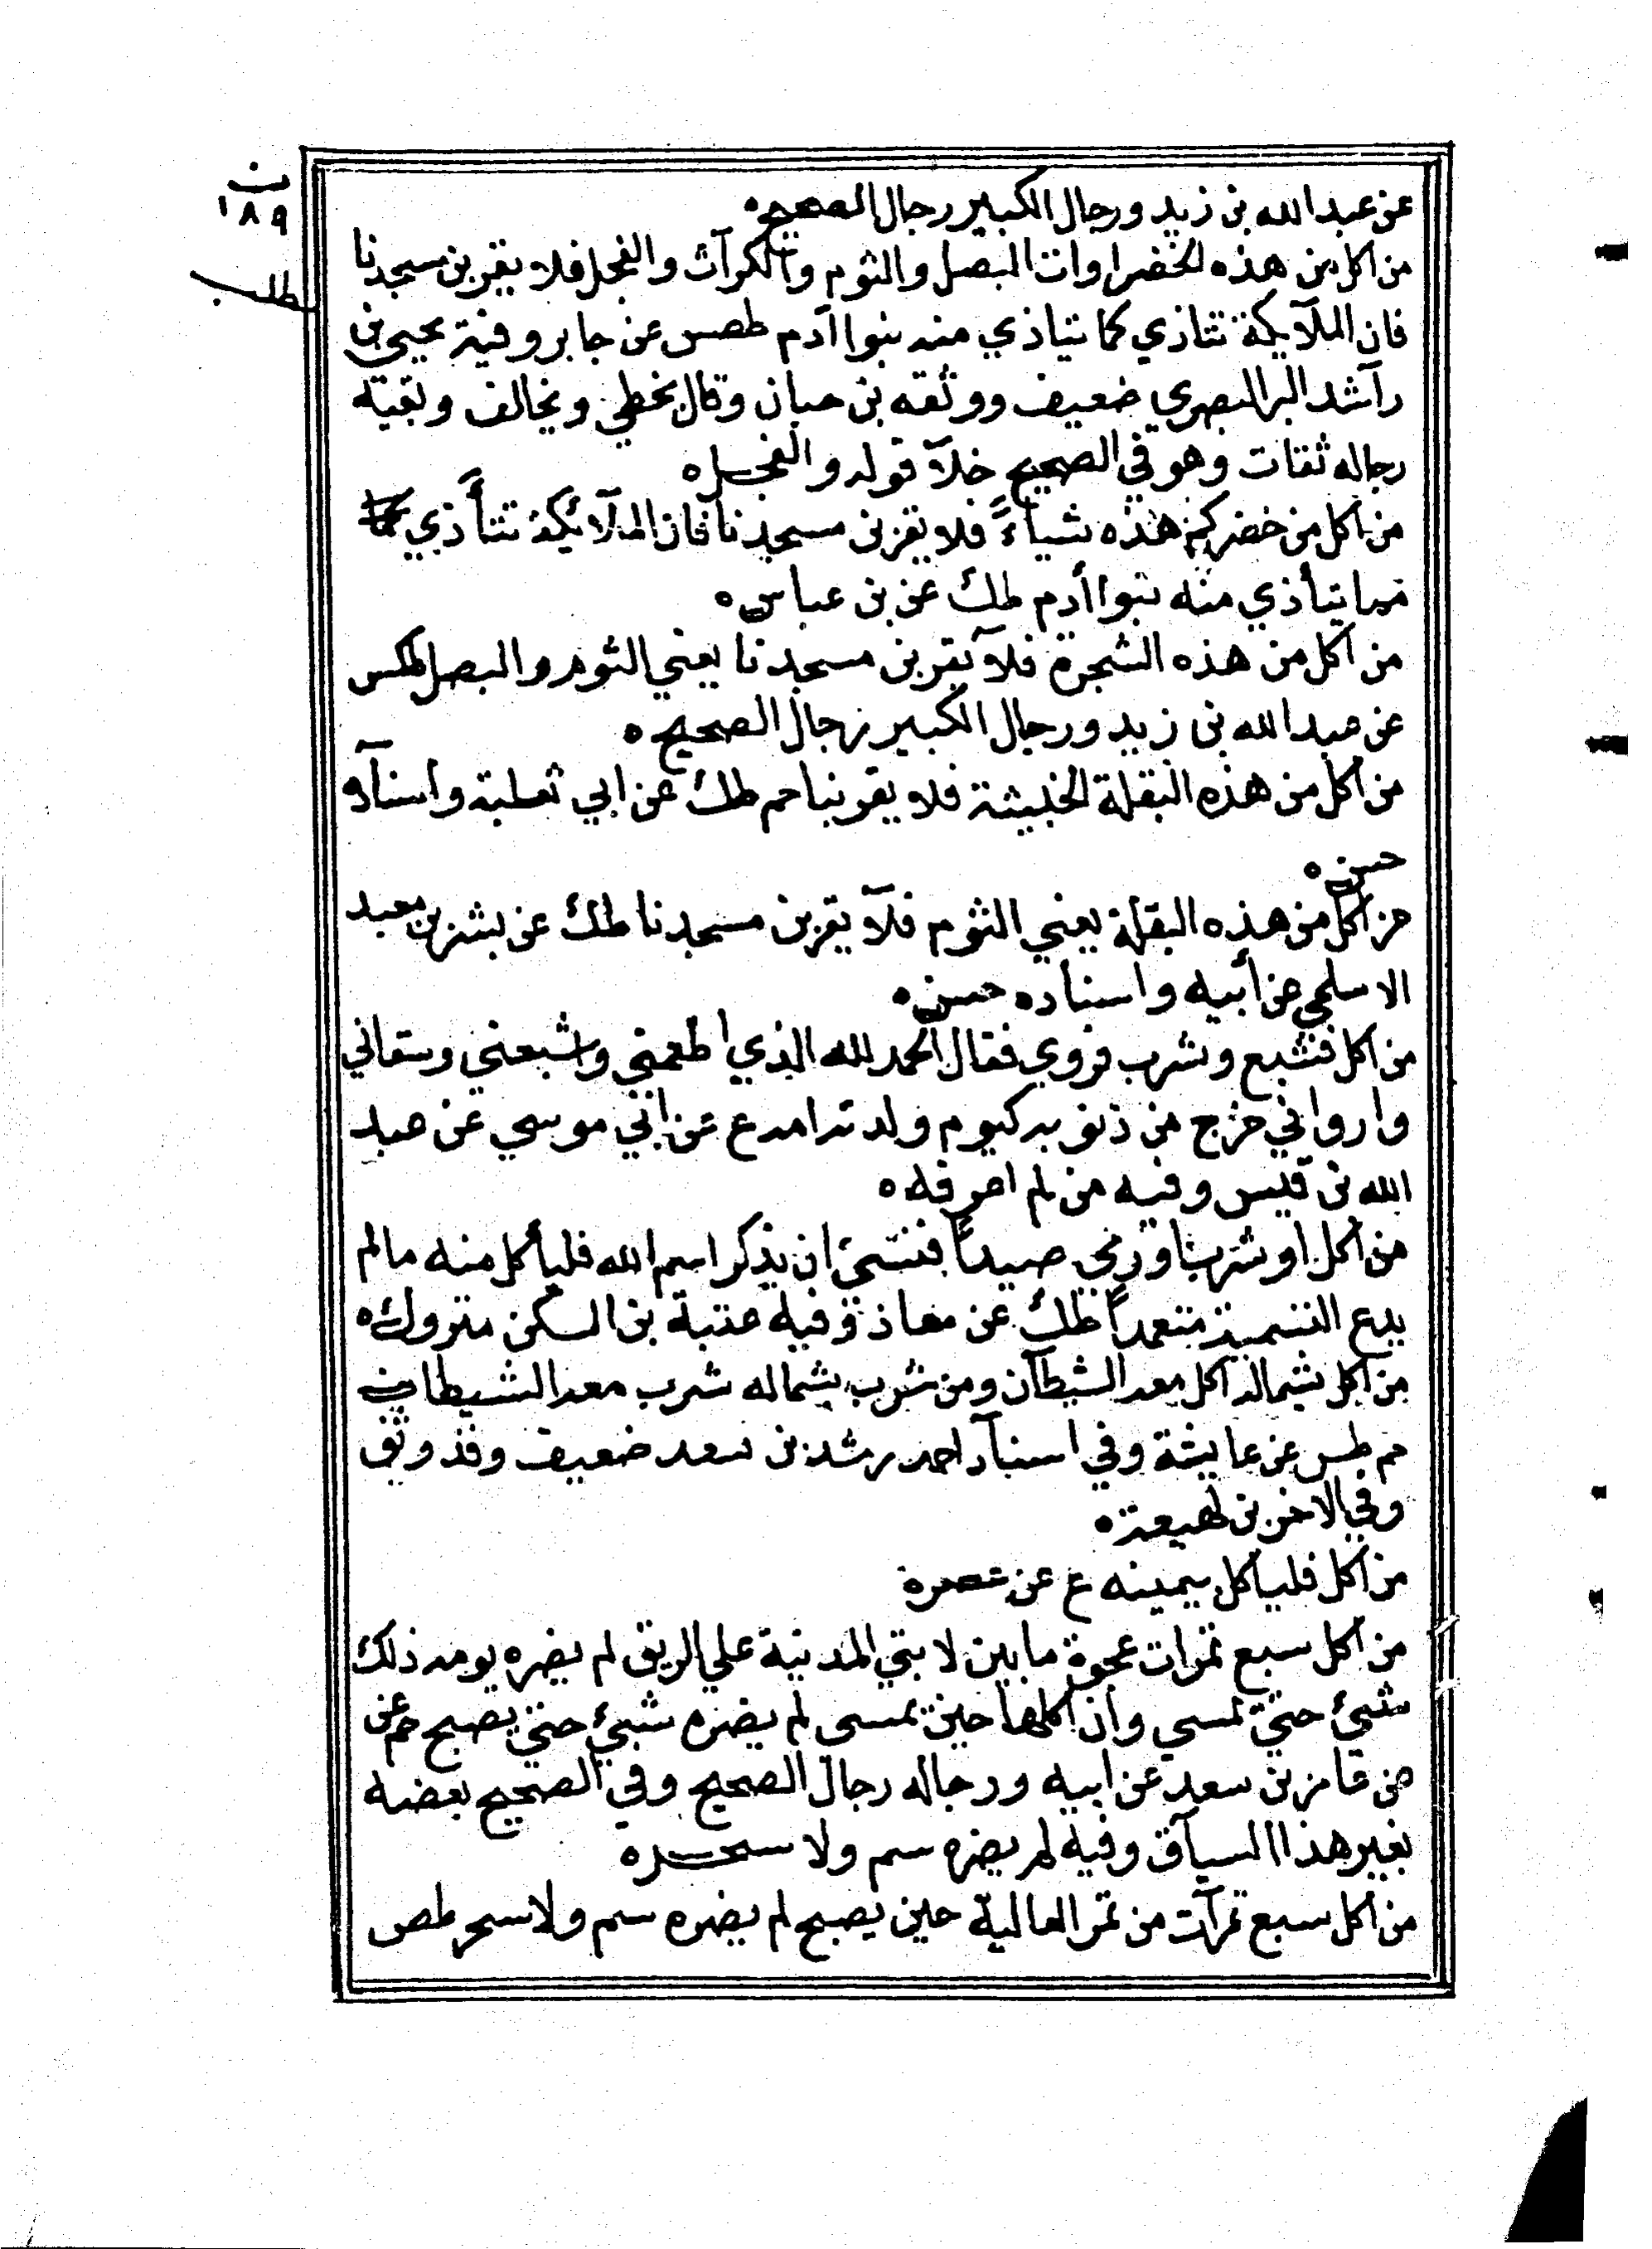 ن
١٨٩
طلب
عن عبد الله بن زيد ورجال الكبير رجال الصحيح ه
من اكل من هذه الخضراوات البصل والثوم والكرآث والفجل فلا يقربن مسجدنا
فان الملآيكة تتاذي كما يتاذي منه بنوا آدم طصس عن جابر وفيه يحيي بن
رآشد البر البصري ضعيف ووثقه بن حبان وقال يخطي ويخالف وبقية
رجاله ثقات وهو في الصحيح خلآ قوله والفجل ه
من اكل من خضركم هذه شياءً فلا يقربن مسجدنا فان الملآئكة تتأذي كما
مما يتأذي منه بنوا أدم طك عن بن عباس ه
من اكل من هذه الشجرة فلآ يقربن مسجدنا يعني الثوم والبصل طكس
عن عبد الله بن زيد ورجال الكبير رجال الصحيح ه
من اكل من هذه البقلة الخبيثة فلا يقربنا حم طك عن ابي ثعلبة واسنآده
حسن ه
من اكل من هذه البقلة يعني الثوم فلآ يقربن مسجدنا طك عن بشر بن معبد
الاسلمي عن أبيه واسناده حسن ه
من اكل فشبع وشرب فروي فقال الحمد لله الذي اطعمني واشبعني وسقاني
وارواني خرج من ذنوبه كيوم ولدته امه ع عن ابي موسي عن عبد
الله بن قيس وفيه من لم اعرفه ه
من اكل او شرب او رمي صيداً فنسئ ان يذكر اسم الله فلياكل منه مالم
يدع التسمية متعمداً طك عن معاذ وفيه عتبة بن السكن متروك ه
من اكل بشماله اكل معه الشيطآن ومن شرب بشماله شرب معه الشيطان
حم طس عن عايشة وفي اسنآد احمد رشد بن سعد ضعيف وقد وثق
وفي الاخر بن لهيعة ه
من اكل فليأكل بيمينه ع عن عمرة
من اكل سبع تمرات عجوة مابين لابتي المدينة علي الريق لم يضره يومه ذلك
شئ حتي يمسي وأن اكلها حين يمسي لم يضره شئ حتي يصبح حم عن
عن عامر بن سعد عن ابيه ورجاله رجال الصحيح وفي الصحيح بعضه
بغير هذا السيآق وفيه لم يضره سم ولا سحر ه
من اكل سبع تمرآت من تمر العالية حين يصبح لم يضره سم ولا سحر طص